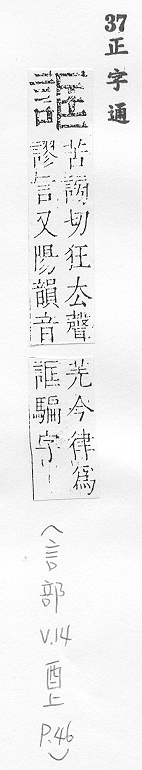 37 正字通
誆
苦謗切狂厺聲
謬言又陽韻音
羌今律爲
誆騙字
(言部 V.14 酉上 P.46)